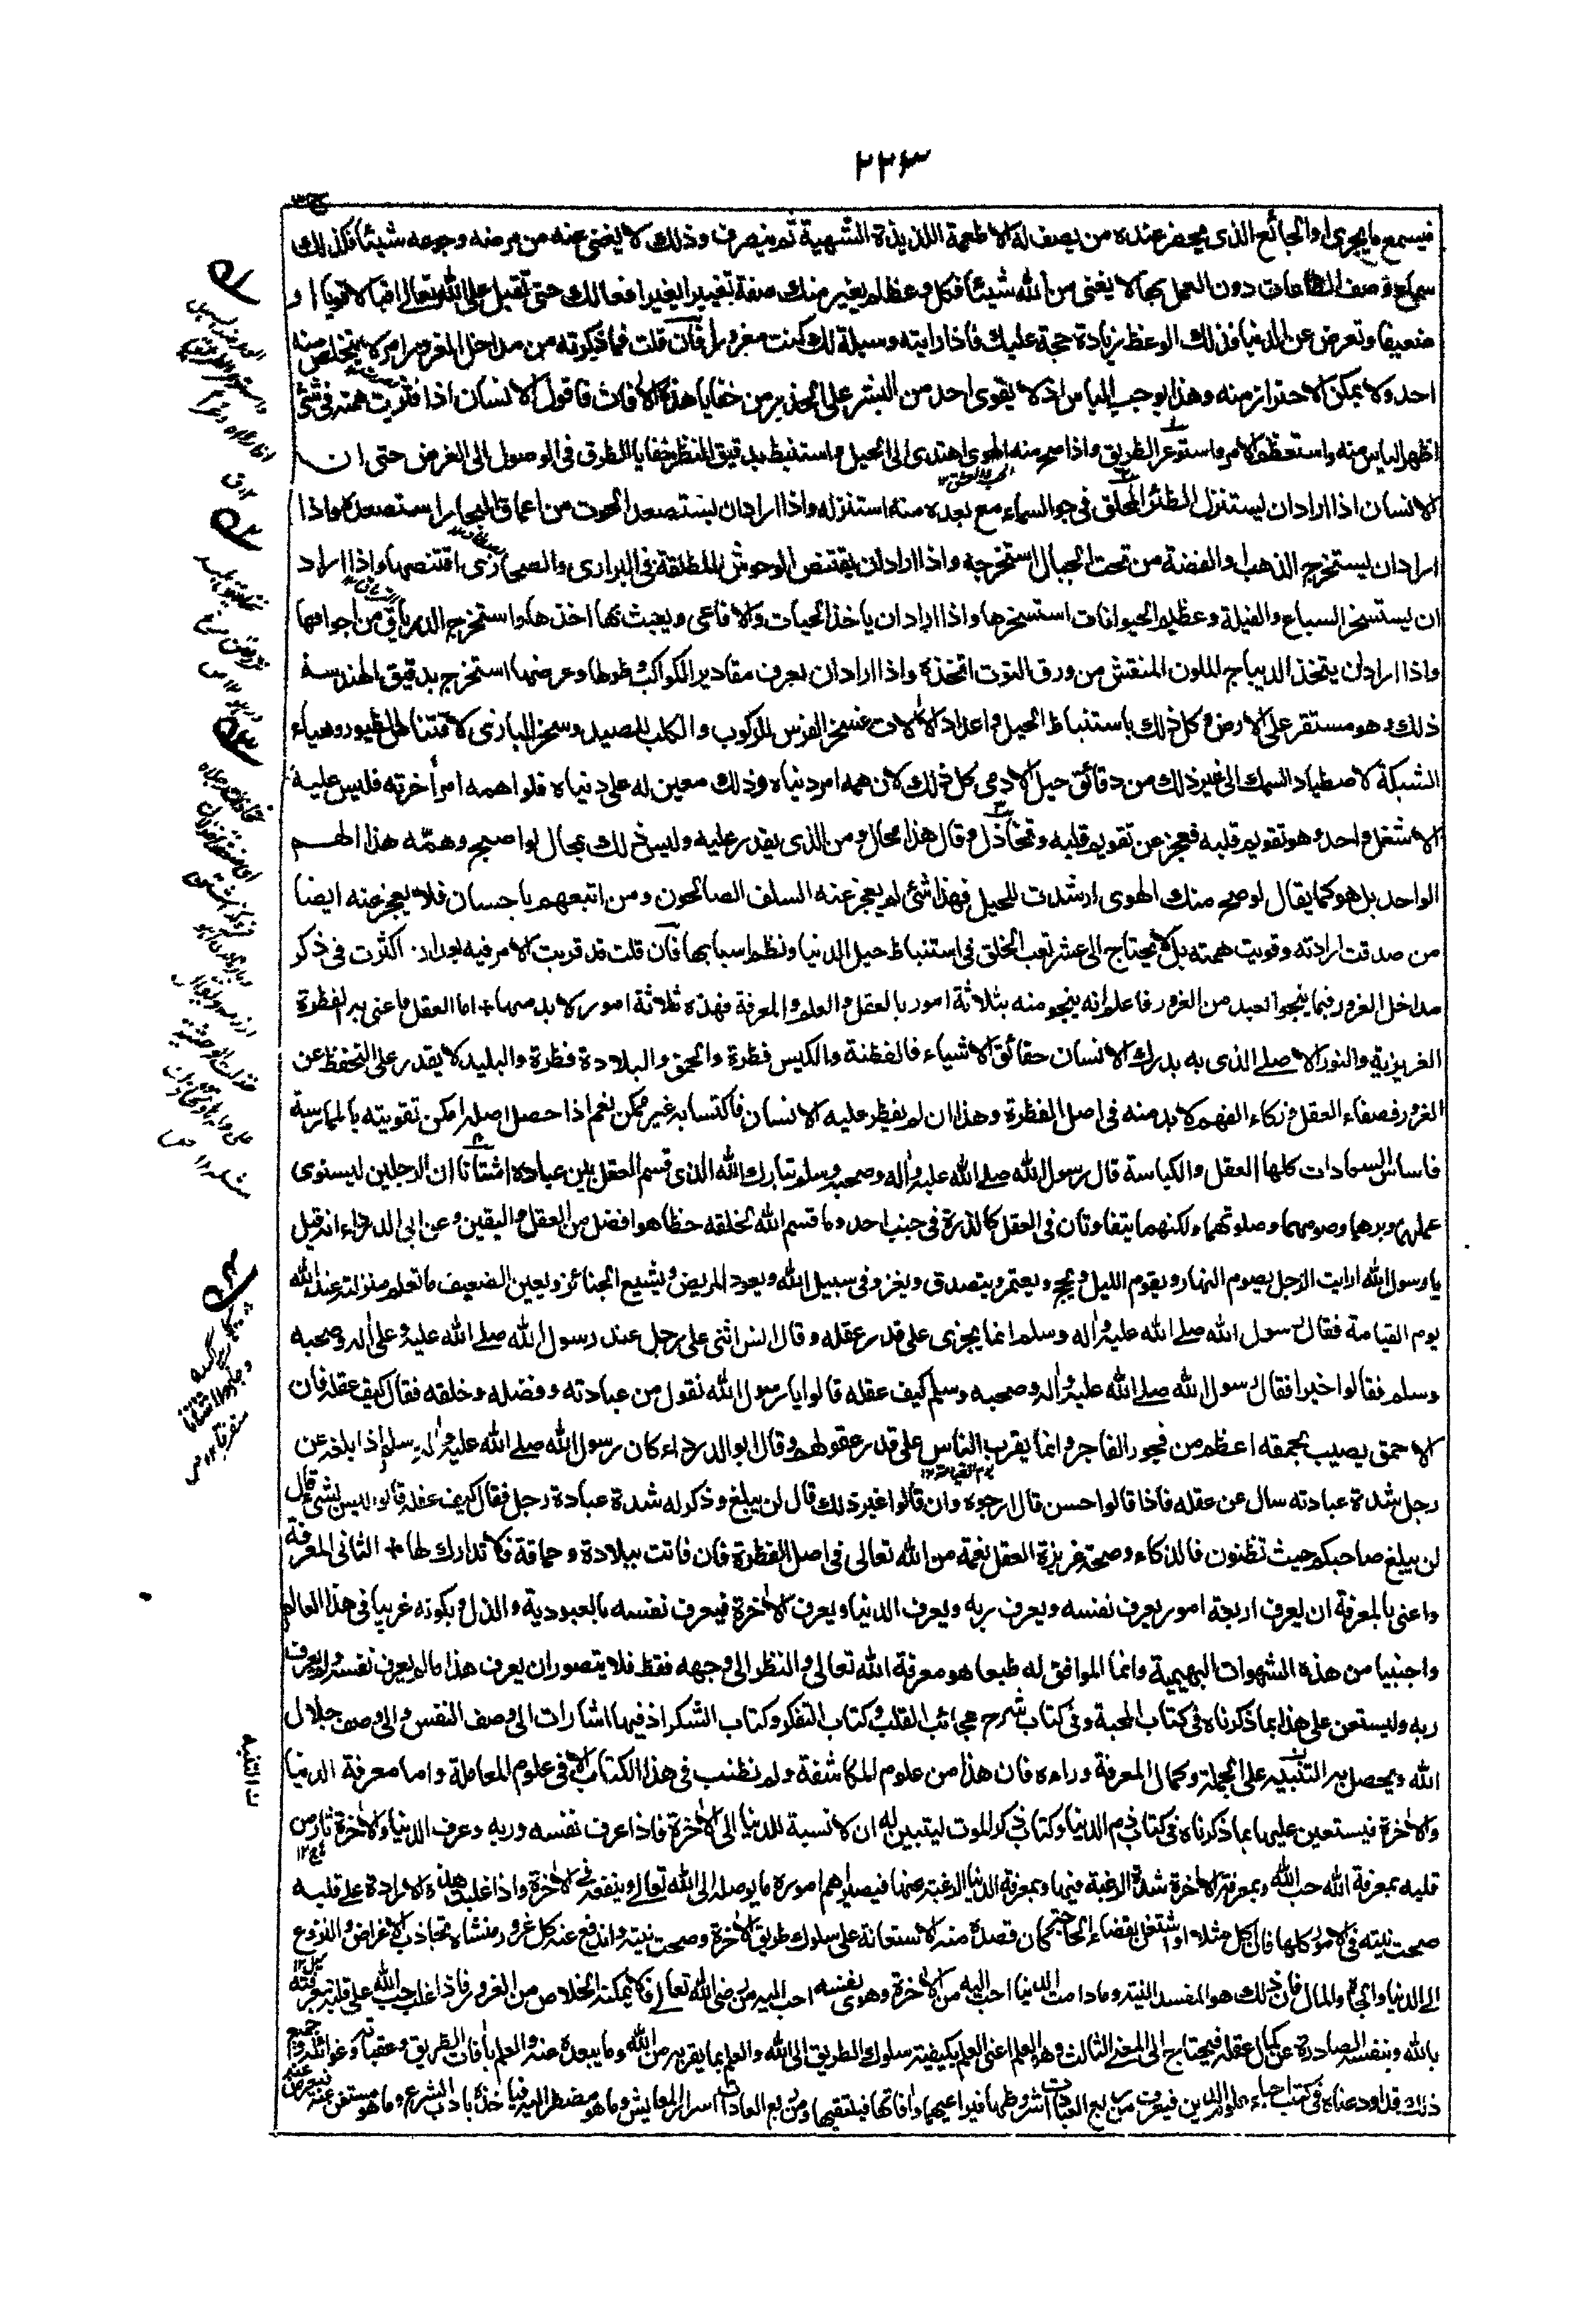 ٢٢٣
ج ٣
فيسمع ما يجرى او الجائع الذى يحضر عنده من يصف له الاطعمة اللذيذة الشهية ثم ينصرف وذلك لا يغنى عنه من مرضه وجوعه شيئا فكذلك
سماع وصف الطاعات دون العمل بها لا يغنى من الله شيئا فكل وعظ لم يغير منك صفة تغييرا يغير افعالك حتى تقبل على الله تعالى اقبالا قويا او
ضعيفا وتعرض عن الدنيا فذلك الوعظ زيادة حجة عليك فاذا رايته وسيلة لك كنت مغرورا فان قلت فما ذكرته من مداخل الغرور امر لا يتخلص منه
احد ولا يمكن الاحتراز منه وهذا يوجب الياس اذ لا يقوى احد من البشر على الحذر من خفايا هذه الآفات فاقول الانسان اذا فترت همته فى شئ
اظهر الياس منه واستعظم الامر واستوعر الطريق واذا صح منه الهوى اهتدى الى الحيل واستنبط بدقيق النظر خفايا الطرق فى الوصول الى الغرض حتى ان
الانسان اذا اراد ان يستنزل الطير المحلق فى جو السماء مع بعده منه استنزله واذا اراد ان يستصعد الحوت من اعماق البحار استصعده واذا
اراد ان يستخرج الذهب والفضة من تحت الجبال استخرجه واذا اراد ان يقتنص الوحوش المطلقة فى البرارى والصحارى اقتنصها واذا اراد
ان يستسخر السباع والفيلة وعظيم الحيوانات استسخرها واذا اراد ان ياخذ الحيات والافاعى ويعبث بها اخذها واستخرج الدرياق من اجوافها
واذا اراد ان يتخذ الديباج الملون المنقش من ورق التوت اتخذه واذا اراد ان يعرف مقادير الكواكب وطولها وعرضها استخرج بدقيق الهندسة
ذلك وهو مستقر على الارض وكل ذلك باستنباط الحيل واعداد الالات فسخر الفرس للركوب والكلب للصيد وسخر البازى لاقتناص الطيور وهياء
الشبكة لاصطياد السمك الى غير ذلك من دقائق حيل الآدمى كل ذلك لان همه امر دنياه وذلك معين له على دنياه فلو اهمه امر آخرته فليس عليه
الا شغل واحد وهو تقويم قلبه فعجز عن تقويم قلبه وتخاذل وقال هذا محال ومن الذى يقدر عليه وليس ذلك بمحال لو اصبح وهمه هذا الهم
الواحد بل هو كما يقال لو صح منك الهوى ارشدت للحيل فهذا شئ لم يعجز عنه السلف الصالحون ومن اتبعهم باحسان فلا يعجز عنه ايضا
من صدقت ارادته وقويت همته بل لا يحتاج الى عشر تعب الخلق فى استنباط حيل الدنيا ونظم اسبابها فان قلت قد قربت الامر فيه بعد ان اكثرت فى ذكر
مداخل الغرور فبما ينجو العبد من الغرور فاعلم انه ينجو منه بثلاثة امور بالعقل والعلم والمعرفة فهذه ثلاثة امور لا بد منها * اما العقل فاعنى به الفطرة
الغريزية والنور الاصلى الذى به يدرك الانسان حقائق الاشياء فالفطنة والكيس فطرة والحمق والبلادة فطرة والبليد لا يقدر على التحفظ عن
الغرور فصفاء العقل وذكاء الفهم لا بد منه فى اصل الفطرة وهذا ان لم يفطر عليه الانسان فاكتسابه غير ممكن نعم اذا حصل اصله امكن تقويته بالممارسة
فاساس السعادات كلها العقل والكياسة قال رسول الله صلى الله عليه وآله وصحبه وسلم تبارك الله الذى قسم العقل بين عباده اشتاتا ان الرجلين ليستوى
عملهما وبرهما وصومهما وصلوتهما ولكنهما يتفاوتان فى العقل كالذرة فى جنب احد وما قسم الله لخلقه حظا هو افضل من العقل واليقين وعن ابى الدرداء انه قيل
يا رسول الله ارايت الرجل يصوم النهار ويقوم الليل ويحج ويعتمر ويتصدق ويغزو فى سبيل الله ويعود المريض ويشيع الجنائز ويعين الضعيف ما تعلم منزلته عند الله
يوم القيامة فقال رسول الله صلى الله عليه وآله وسلم انما يجزى على قدر عقله وقال انس اثنى على رجل عند رسول الله صلى الله عليه وعلى آله وصحبه
وسلم فقالوا خيرا فقال رسول الله صلى الله عليه وآله وصحبه وسلم كيف عقله قالوا يا رسول الله نقول من عبادته وفضله وخلقه فقال كيف عقله فان
الاحمق يصيب بحمقه اعظم من فجور الفاجر وانما يقرب الناس على قدر عقولهم وقال ابو الدرداء كان رسول الله صلى الله عليه وآله وسلم اذا بلغه عن
رجل شدة عبادته سال عن عقله فاذا قالوا حسن قال ارجوه وان قالوا غير ذلك قال لن يبلغ وذكر له شدة عبادة رجل فقال كيف عقله قالوا ليس بشئ قال
لن يبلغ صاحبكم حيث تظنون فالذكاء وصحة غريزة العقل نعمة من الله تعالى فى اصل الفطرة فان فاتت ببلادة وحماقة فلا تدارك لها * الثانى المعرفة
واعنى بالمعرفة ان يعرف اربعة امور يعرف نفسه ويعرف ربه ويعرف الدنيا ويعرف الآخرة فيعرف نفسه بالعبودية والذل وبكونه غريبا فى هذا العالم
واجنبيا من هذه الشهوات البهيمية وانما الموافق له طبعا هو معرفة الله تعالى والنظر الى وجهه فقط فلا يتصور ان يعرف هذا ما لم يعرف نفسه ولم يعرف
ربه وليستعن على هذا بما ذكرناه فى كتاب المحبة وفى كتاب شرح عجائب القلب وكتاب التفكر وكتاب الشكر اذ فيها اشارات الى وصف النفس والى وصف جلال
الله ويحصل به التنبيه على الجملة وكمال المعرفة وراءه فان هذا من علوم المكاشفة ولم نطنب فى هذا الكتاب الا فى علوم المعاملة واما معرفة الدنيا
والآخرة فيستعين عليها بما ذكرناه فى كتاب ذم الدنيا وكتاب ذكر الموت ليتبين له ان لا نسبة للدنيا الى الآخرة فاذا عرف نفسه وربه وعرف الدنيا والآخرة ثار من
قلبه بمعرفة الله حب الله وبمعرفة الآخرة شدة الرغبة فيها وبمعرفة الدنيا الرغبة عنها فيصير اهم اموره ما يوصله الى الله تعالى وينفعه فى الآخرة واذا غلبت هذه الارادة على قلبه
صحت نيته فى الامور كلها فان اكل مثلا او اشتغل بقضاء الحاجة كان قصده منه الاستعانة على سلوك طريق الآخرة وصحت نيته واندفع عنه كل غرور منشاه تجاذب الاغراض والنزوع
الى الدنيا والجاه والمال فان ذلك هو المفسد للنية وما دامت الدنيا احب اليه من الآخرة وهوى نفسه احب اليه من رضى الله تعالى فلا يمكنه الخلاص من الغرور فاذا غلب حب الله على قلبه بمعرفته
بالله وبنفسه الصادرة عن كمال عقله فيحتاج الى المعنى الثالث وهو العلم اعنى العلم بكيفية سلوك الطريق الى الله والعلم بما يقربه من الله وما يبعده عنه والعلم بآفات الطريق وعقباته وغوائله وجميع
ذلك قد اودعناه فى كتب احياء علوم الدين فيعرف من ربع العبادات شروطها فيراعيها وآفاتها فيتقيها ومن ربع العادات اسرار المعايش وما هو مضطر اليه فياخذه بادب الشرع وما هو مستغن عنه فيعرض عنه